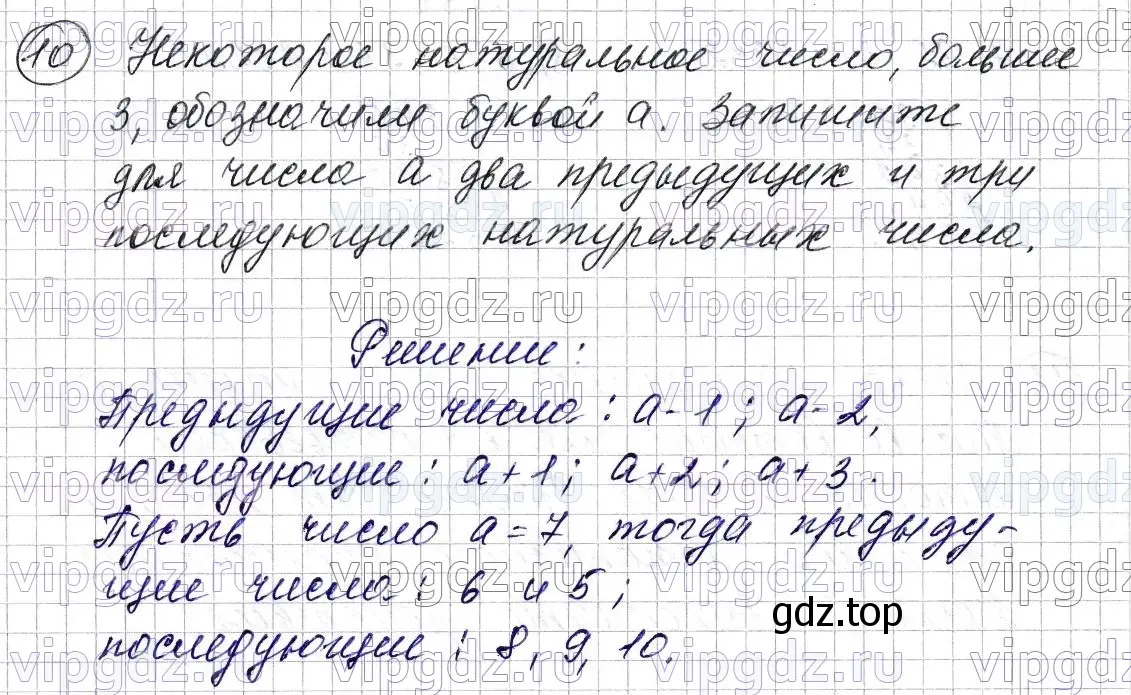 10 Некоторое натуральное число, больше
3, обозначили буквой а. Запишите
для числа а два предыдущих и три
последующих натуральных числа.
Решение:
Предыдущие числа: а-1; а-2,
последующие: а+1; а+2; а+3.
Пусть число а=7, тогда предыду-
щие числа: 6 и 5;
gdz.top
последующие: 8, 9, 10.
vipgdz.ru